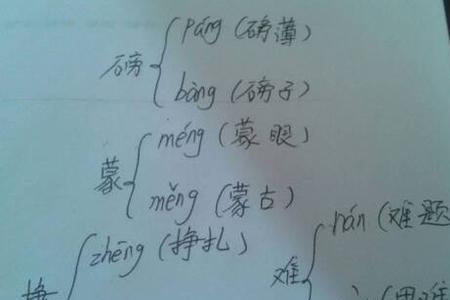 páng (磅薄)
磅
bàng (磅子)
méng (蒙眼)
蒙
měng (蒙古)
nán (难题
zhēng (挣扎)
难
挣